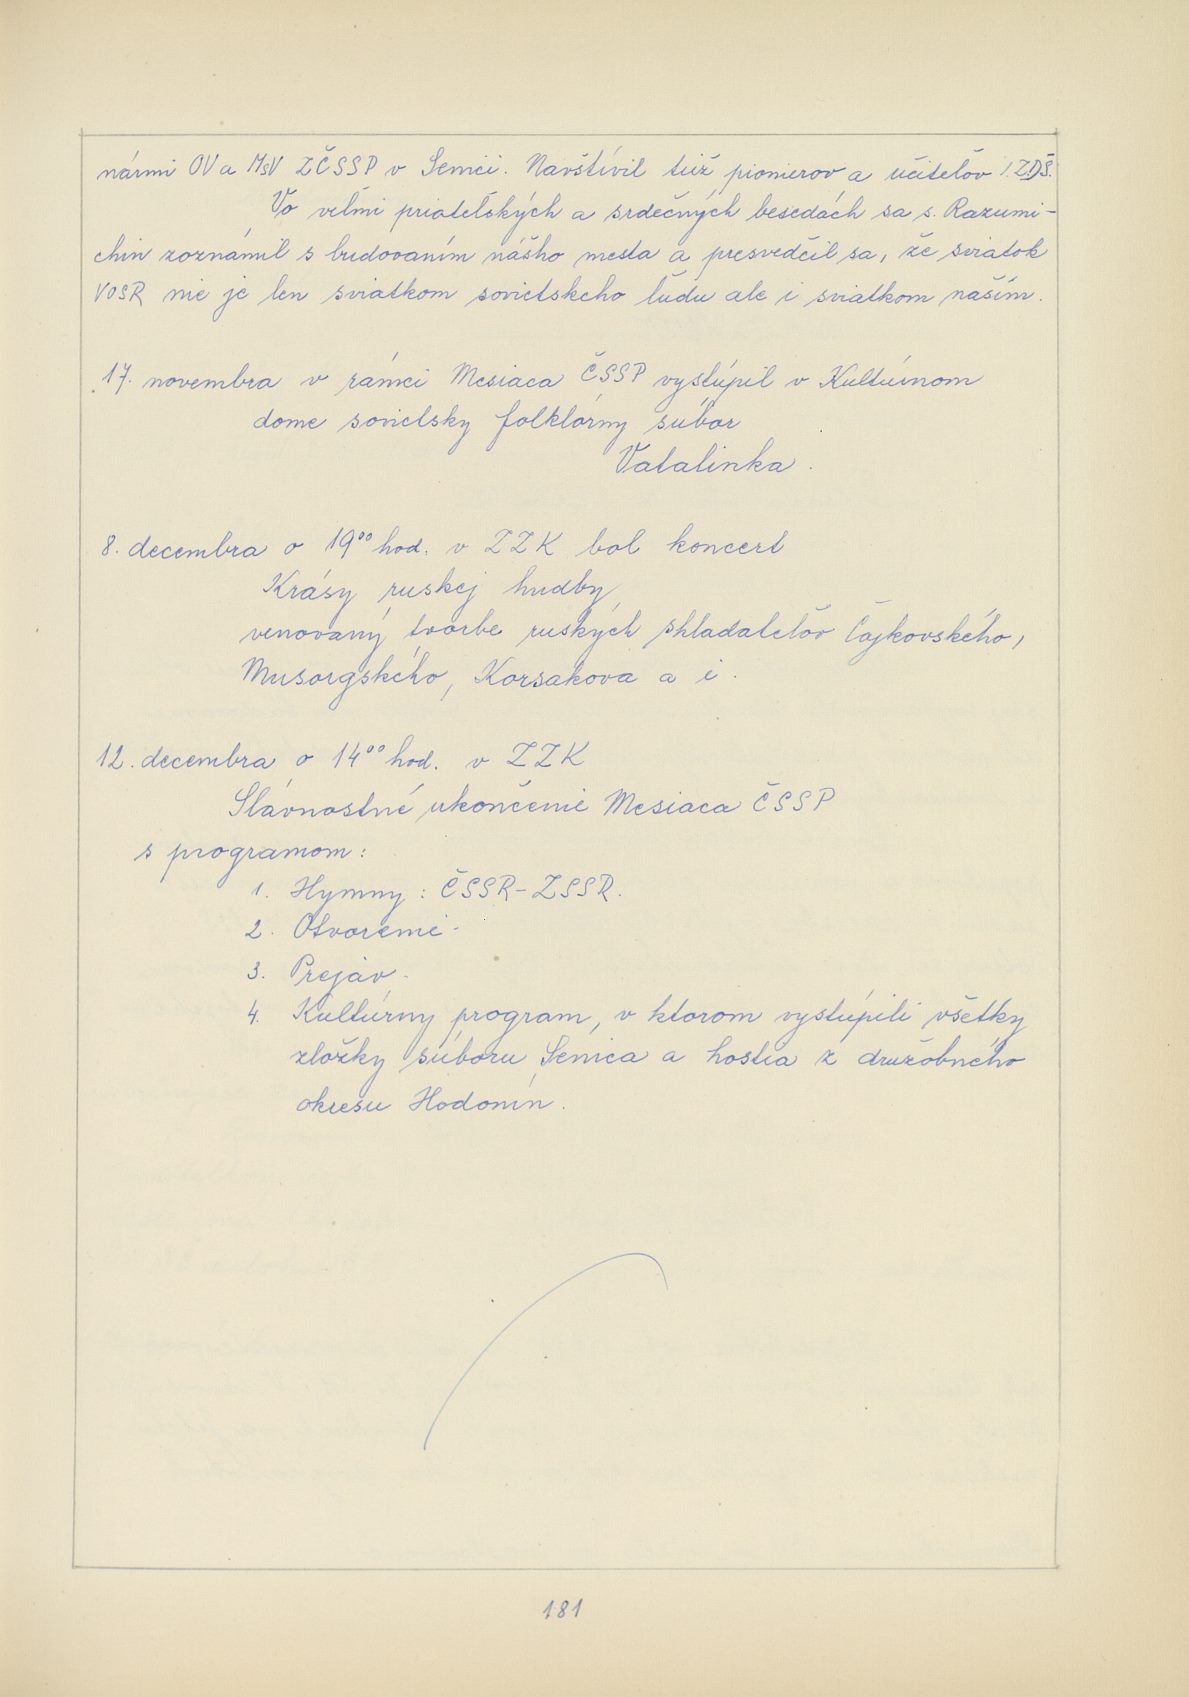 nármi OV a MsV ZČSSP v Senici. Navštívil tiež pionierov a učiteľov I. ZDŠ.
Vo veľmi priateľských a srdečných besedách sa s. Razumi-
chin zoznámil s budovaním nášho mesta a presvedčil sa, že sviatok
VOSR nie je len sviatkom sovietskeho ľudu ale i sviatkom naším.
17. novembra v rámci Mesiaca ČSSP vystúpil v Kultúrnom
dome sovietsky folklórny súbor
Vatalinka.
8. decembra o 19⁰⁰ hod. v ZZK bol koncert
Krásy ruskej hudby
venovaný tvorbe ruských skladateľov Čajkovského,
Musorgského, Korsakova a i.
12. decembra o 14⁰⁰ hod. v ZZK
Slávnostné ukončenie Mesiaca ČSSP
s programom:
1. Hymny: ČSSR-ZSSR.
2. Otvorenie.
3. Prejav.
4. Kultúrny program, v ktorom vystúpili všetky
zložky súboru Senica a hostia z družobného
okresu Hodonín.
181